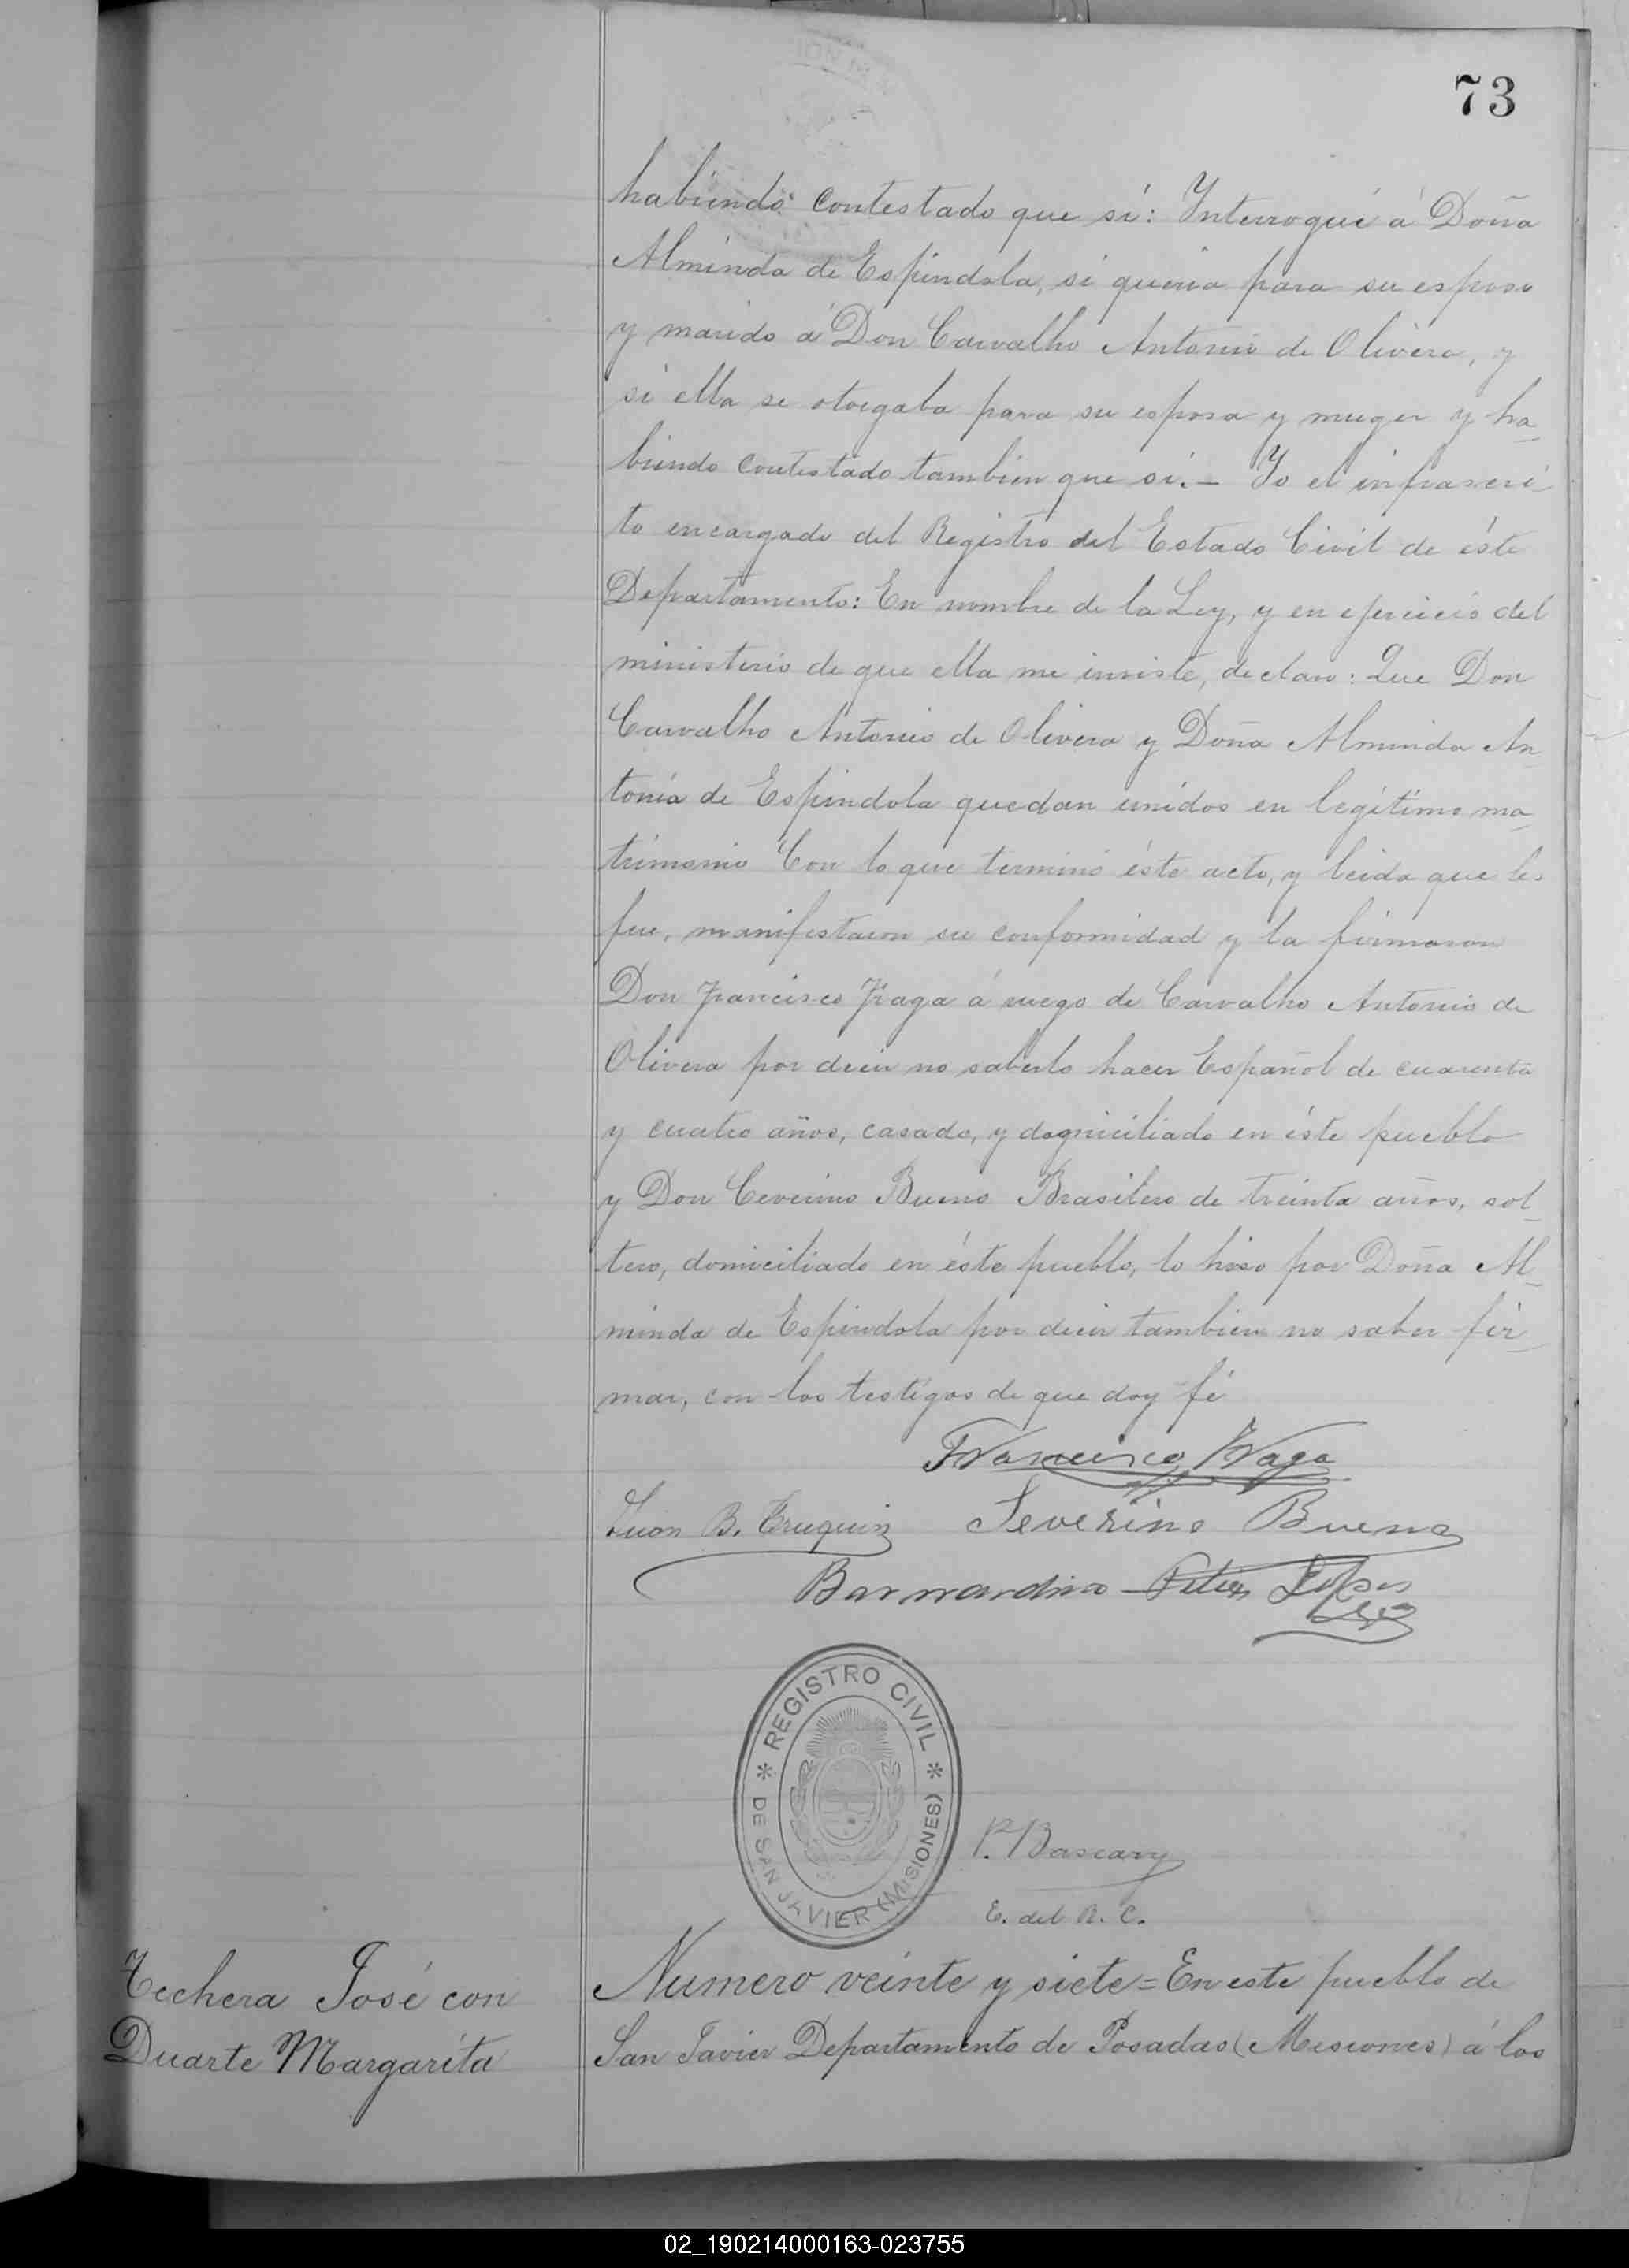 73
habiendo contestado que sí: Interrogué á Doña
Alminda de Espindola, si queria para su esposo
y marido á Don Carvalho Antonio de Olivera, y
si ella se otorgaba para su esposa y muger y ha_
biendo contestado tambien que si.— Yo el infrascri
to encargado del Registro del Estado Civil de éste
Departamento: En nombre de la Ley, y en ejercicio del
ministerio de que ella me inviste, declaro: Que Don
Carvalho Antonio de Olivera y Doña Alminda An_
tonia de Espindola quedan unidos en legítimo ma_
trimonio Con lo que terminó éste acto, y leida que les
fue, manifestaron su conformidad y la firmaron
Don Francisco Fraga á ruego de Carvalho Antonio de
Olivera por decir no saberlo hacer Español de cuarenta
y cuatro años, casado, y dogmiciliado en éste pueblo
y Don Ceverino Bueno Brasilero de treinta años, sol_
tero, domiciliado en éste pueblo, lo hiso por Doña Al_
minda de Espindola por decir tambien no saber fir_
mar, con los testigos de que doy fé
Francisco Fraga
Juan B. Severino Bueno
REGISTRO CIVIL
DE SAN JAVIER (MISIONES)
P. Bascary
E. del R. C.
Techera José con
Duarte Margarita
Numero veinte y siete = En este pueblo de
San Javier Departamento de Posadas (Misiones) á los
02_190214000163-023755